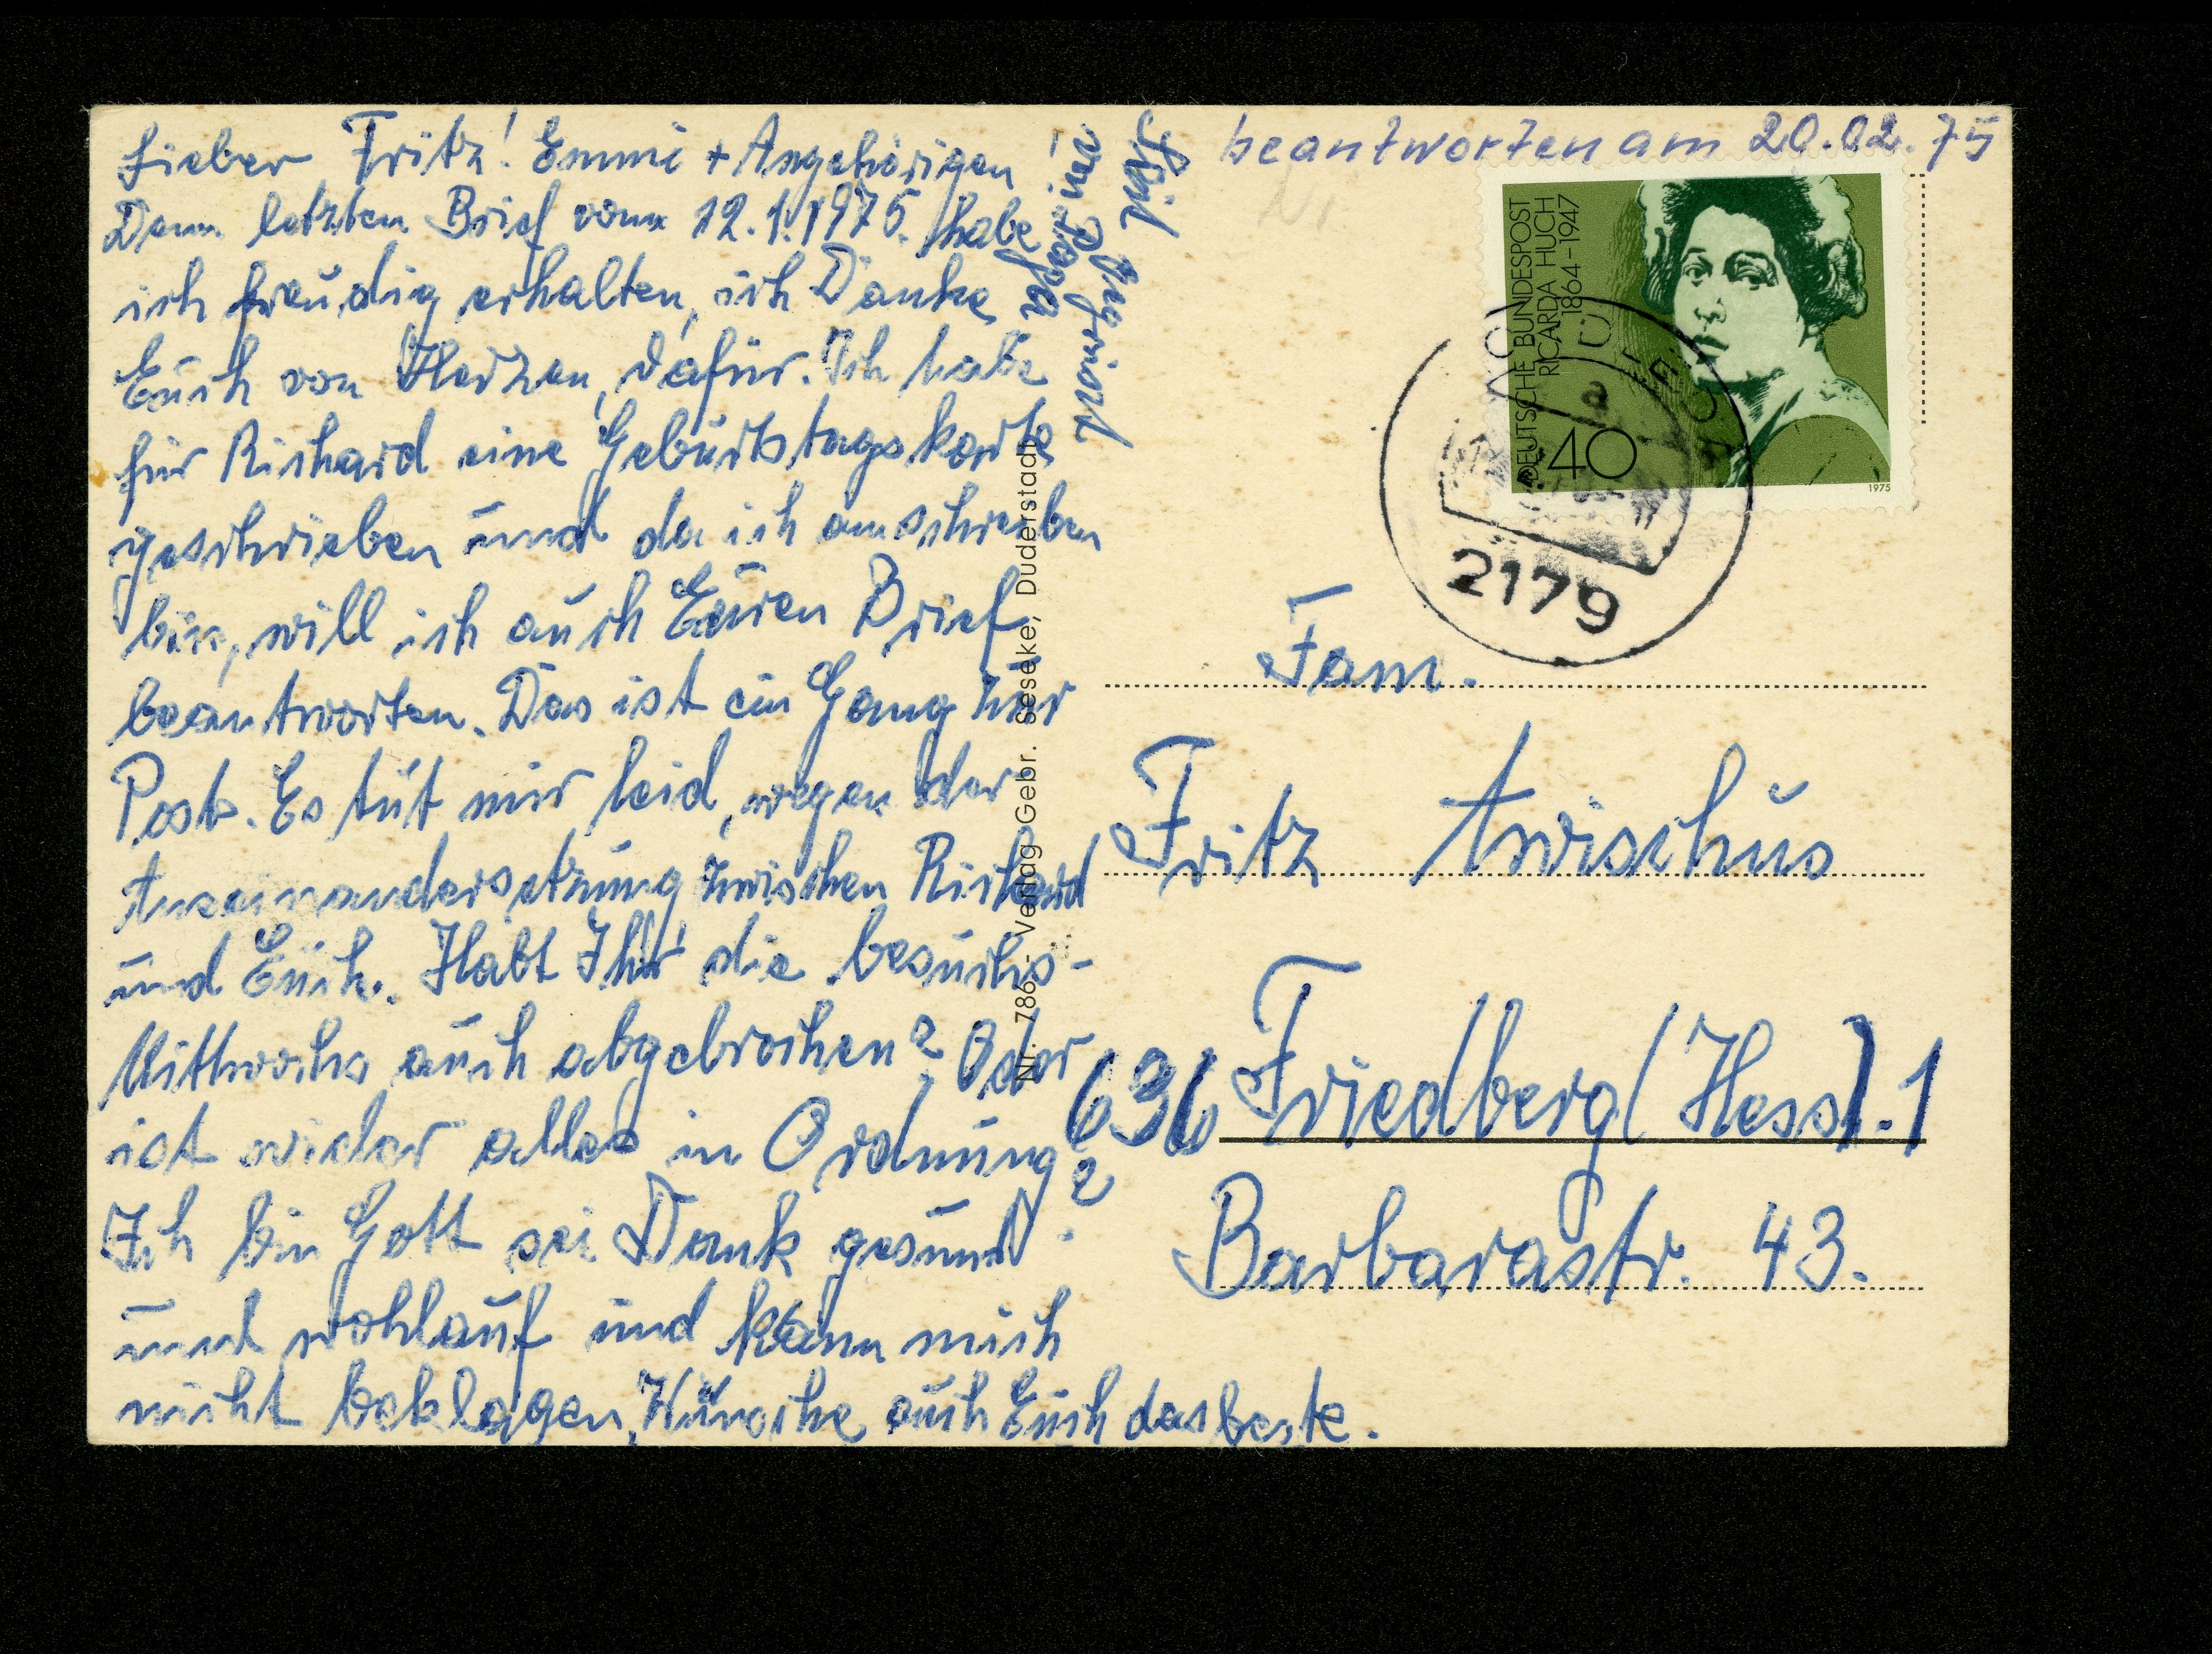 Lieber Fritz! Emmi + Angehörigen!
Denn letzten Brief vom 12.1.1975. habe
ich freudig erhalten, ich Danke
Euch von Herzen, dafür. Ich habe
für Richard eine Geburtstagskarte
geschrieben und da ich amschreiben
bin, will ich auch Euren Brief
beantworten. Das ist ein Gang zur
Post. Es tut mir leid, wegen der
Auseinandersetzung zwischen Richard
und Euch. Habt Ihr die besuchs-
Mittwochs auch abgebrochen? Oder
ist wider alles in Ordnung?
Ich bin Gott sei Dank gesund
und wohlauf und kann mich
nicht beklagen, Wünsche auch Euch das beste.
Seid Gegrüßt
von
Nr. 786 - Verlag Gebr. Seseke, Duderstadt
beantworten am 20.02.75
DEUTSCHE BUNDESPOST
RICARDA HUCH
1864-1947
40
1975
2179
Fam.
Fritz Awischus
636 Friedberg (Hess). 1
Barbarastr. 43.